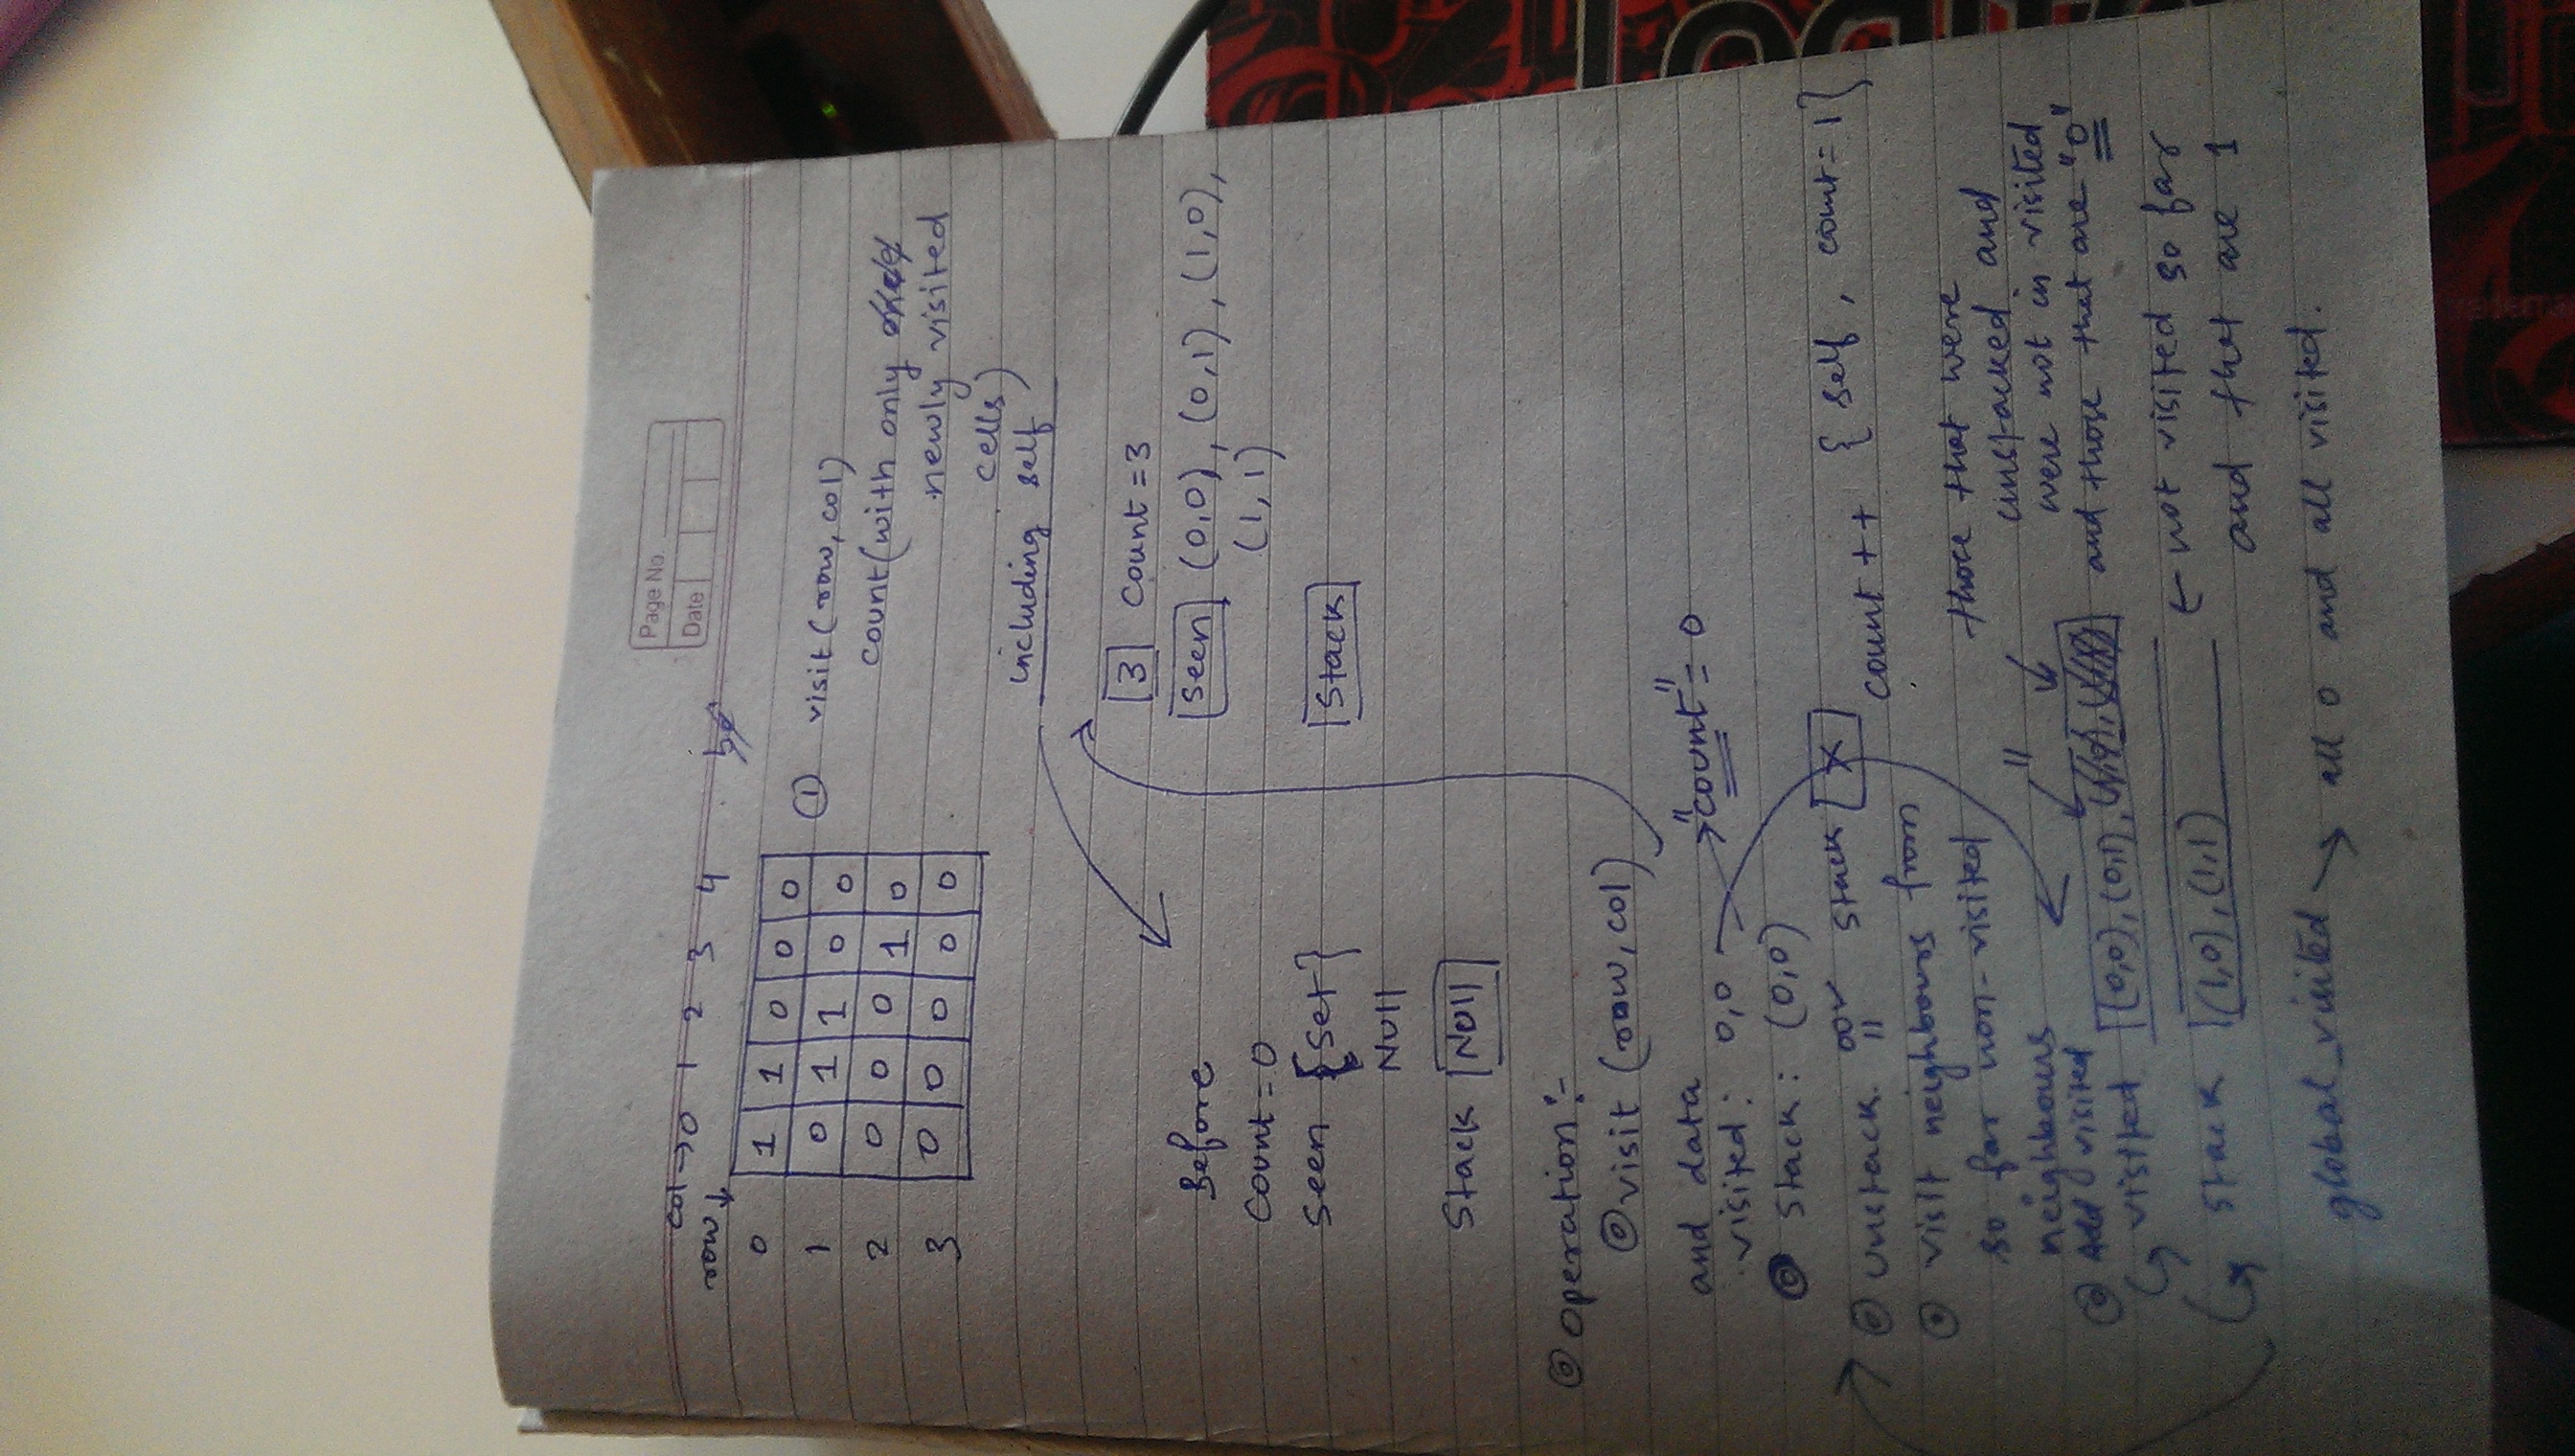 Page No.
Date
col → 0 1 2 3 4
row ↓
0 1 1 0 0 0
1 0 1 1 0 0
2 0 0 0 1 0
3 0 0 0 0 0
① visit (row, col)
count (with only
newly visited
cells)
including self
Before
Count = 0
Seen {Set}
Null
Stack Null
3 count = 3
Seen (0,0), (0,1), (1,0),
(1,1)
Stack
operation:-
visit (row, col)
and data → "count" = 0
visited: 0,0
stack: (0,0)
unstack our stack X count ++ { self, count = 1}
visit neighbours from
so far non-visited
neighbours
those that were
unstacked and
were not in visited
and those that are "0"
Add visited
visited (0,0), (0,1),
stack (1,0), (1,1) ← not visited so far
and that are 1
global_visited → all 0 and all visited.